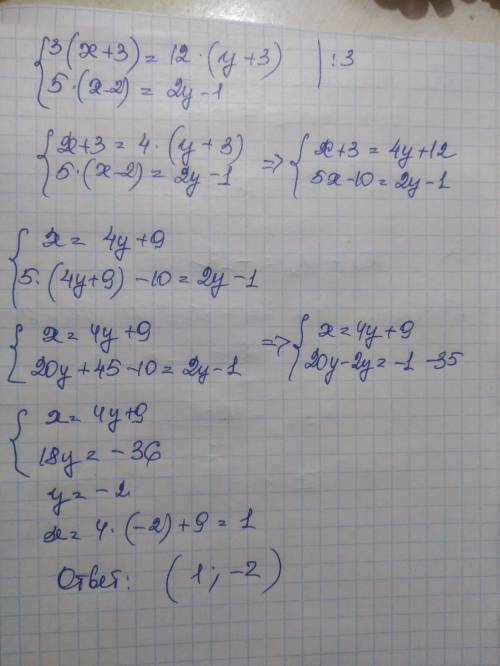 3(x+3) = 12·(y+3) | :3
5·(x-2) = 2y-1
x+3 = 4·(y+3) => x+3 = 4y+12
5·(x-2) = 2y-1 5x-10 = 2y-1
x = 4y+9
5·(4y+9) -10 = 2y-1
x = 4y+9 => x = 4y+9
20y+45-10 = 2y-1 20y-2y = -1 -35
x = 4y+9
18y = -36
y = -2
x = 4·(-2)+9 = 1
Ответ: (1; -2)